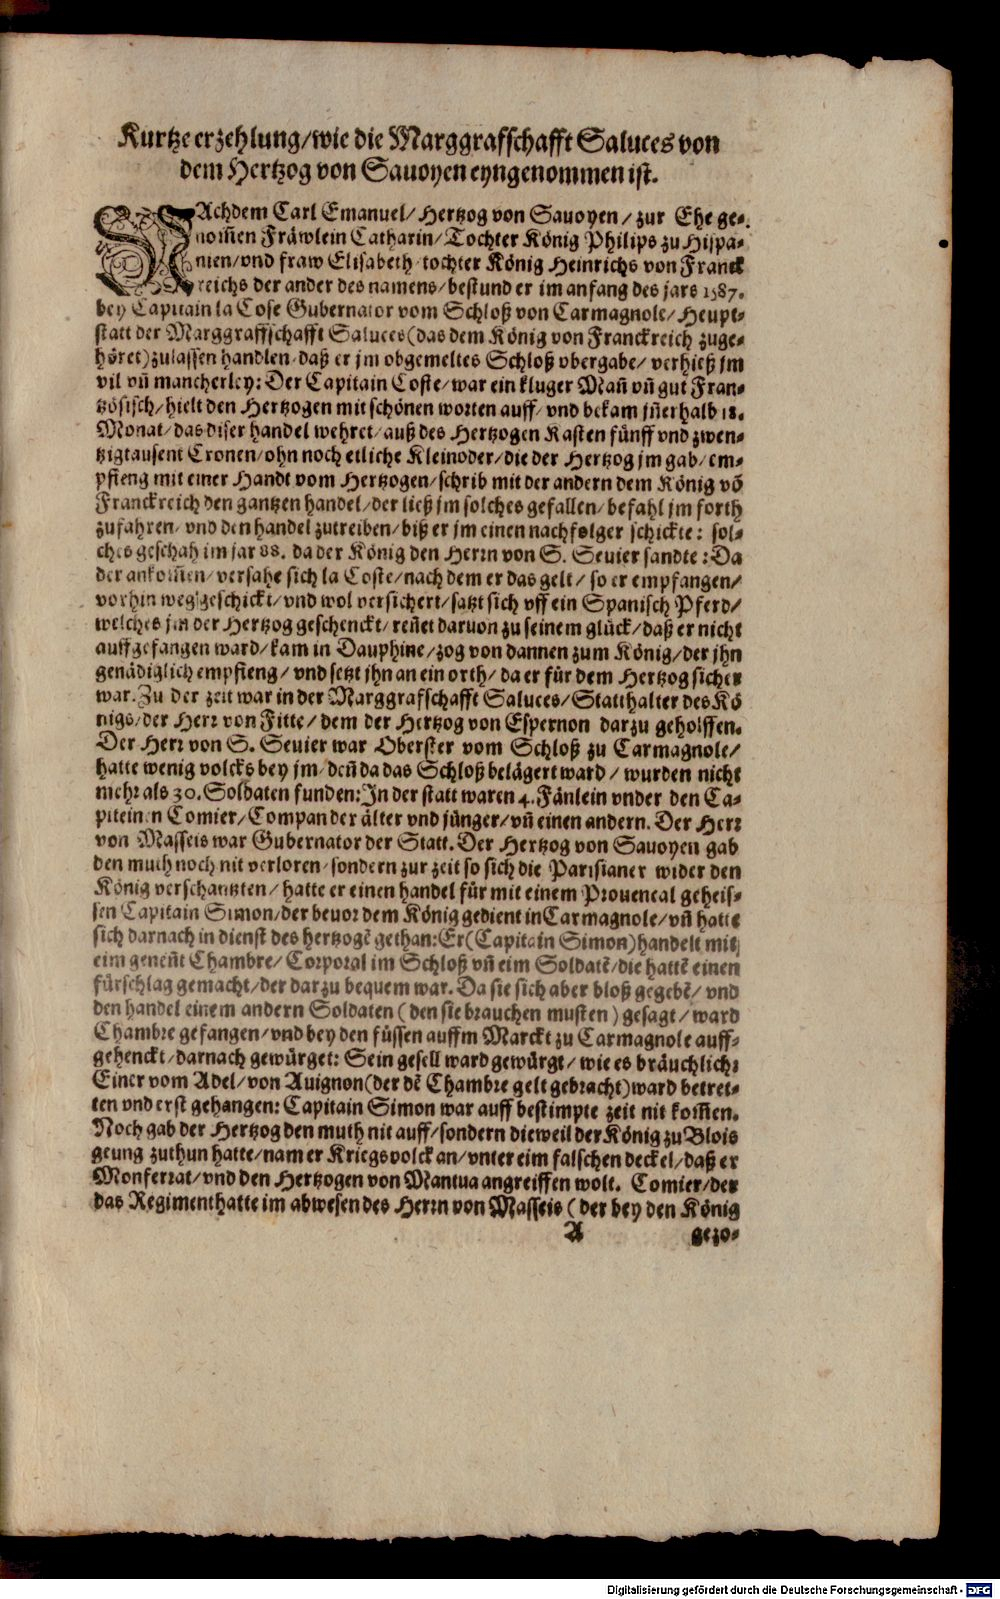 Kurtze erzehlung/wie die Marggrafschafft Saluces von
dem Hertzog von Sauoyen eyngenommen ist.
NAchdem Carl Emanuel/ Hertzog von Sauoyen/ zur Ehe ge-
nom̃en Fräwlein Catharin/ Tochter König Philips zu Hispa-
nien/vnd fraw Elisabeth tochter König Heinrichs von Franck
reichs der ander des namens/ bestund er im anfang des jars 1587.
bey Capitain la Cose Gubernator vom Schloß von Carmagnole/ Heupt-
statt der Marggraffschafft Saluces (das dem König von Franckreich zuge-
höret) zulassen handlen/ daß er jm obgemeltes Schloß vbergabe/ verhieß jm
vil vñ mancherley: Der Capitain Coste/ war ein kluger Mañ vñ gut Fran-
tzösisch/ hielt den Hertzogen mit schönen worten auff/ vnd bekam jñerhalb 18.
Monat/ das diser handel wehret/ auß des Hertzogen Kasten fünff vnd zwen-
tzigtausent Cronen/ ohn noch etliche Kleinoder/ die der Hertzog jm gab/ em-
pfieng mit einer Handt vom Hertzogen/ schrib mit der andern dem König võ
Franckreich den gantzen handel/ der ließ jm solches gefallen/ befahl jm forth
zufahren/ vnd den handel zutreiben/ biß er jm einen nachfolger schickte: sol-
ches geschah im jar 88. da der König den Herrn von S. Seuier sandte: Da
der ankom̃en/ versahe sich la Coste/ nach dem er das gelt/ so er empfangen/
vorhin weggeschickt/ vnd wol versichert/ satzt sich vff ein Spanisch Pferd/
welches jm der Hertzog geschenckt/ reñet daruon zu seinem glück/ daß er nicht
auffgefangen ward/ kam in Dauphine/ zog von dannen zum König/ der jhn
genädiglich empfieng/ vnd setzt jhn an ein orth/ da er für dem Hertzog sicher
war. Zu der zeit war in der Marggrafschafft Saluces/ Statthalter des Kö
nigs/ der Herr von Fitte/ dem der Hertzog von Espernon darzu geholffen.
Der Herr von S. Seuier war Oberster vom Schloß zu Carmagnole/
hatte wenig volcks bey jm/ deñ da das Schloß belägert ward/ wurden nicht
mehr als 30. Soldaten funden: In der statt waren 4. Fänlein vnder den Ca-
piteinen Comier/ Compan der älter vnd jünger/ vñ einen andern. Der Herr
von Masseis war Gubernator der Statt. Der Hertzog von Sauoyen gab
den muth noch nit verloren/ sondern zur zeit so sich die Parisianer wider den
König verschantzten/ hatte er einen handel für mit einem Prouencal geheis-
sen Capitain Simon/ der beuor dem König gedient in Carmagnole/ vñ hatte
sich darnach in dienst des hertzogẽ gethan: Er (Capitain Simon) handelt mit
eim geneñt Chambre/ Corporal im Schloß vñ eim Soldatẽ/ die hattẽ einen
fürschlag gemacht/ der darzu bequem war. Da sie sich aber bloß gegebẽ/ vnd
den handel einem andern Soldaten (den sie brauchen musten) gesagt/ ward
Chambre gefangen/ vnd bey den füssen auffm Marckt zu Carmagnole auff-
gehenckt/ darnach gewürget: Sein gesell ward gewürgt/ wie es bräuchlich:
Einer vom Adel/ von Auignon (der dẽ Chambre gelt gebracht) ward betret-
ten vnd erst gehangen: Capitain Simon war auff bestimpte zeit nit kom̃en.
Noch gab der Hertzog den muth nit auff/ sondern dieweil der König zu Blois
geung zuthun hatte/ nam er Kriegsvolck an/ vnter eim falschen deckel/ daß er
Monferrat/ vnd den Hertzogen von Mantua angreiffen wolt. Comier/ der
das Regiment hatte im abwesen des Herrn von Masseis (der bey den König
A gezo-
Digitalisierung gefördert durch die Deutsche Forschungsgemeinschaft - DFG